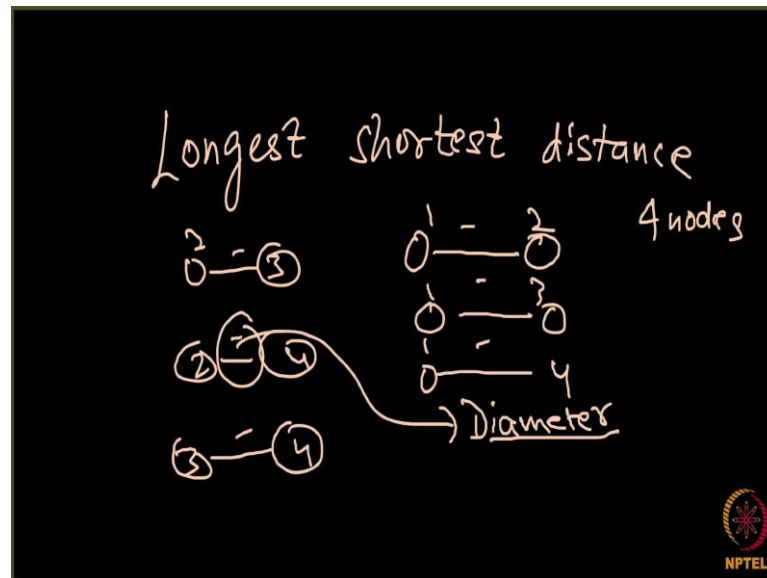 Longest shortest distance
4 nodes
2 - 3
1 - 2
2 - 4
1 - 3
3 - 4
1 - 4
Diameter
NPTEL